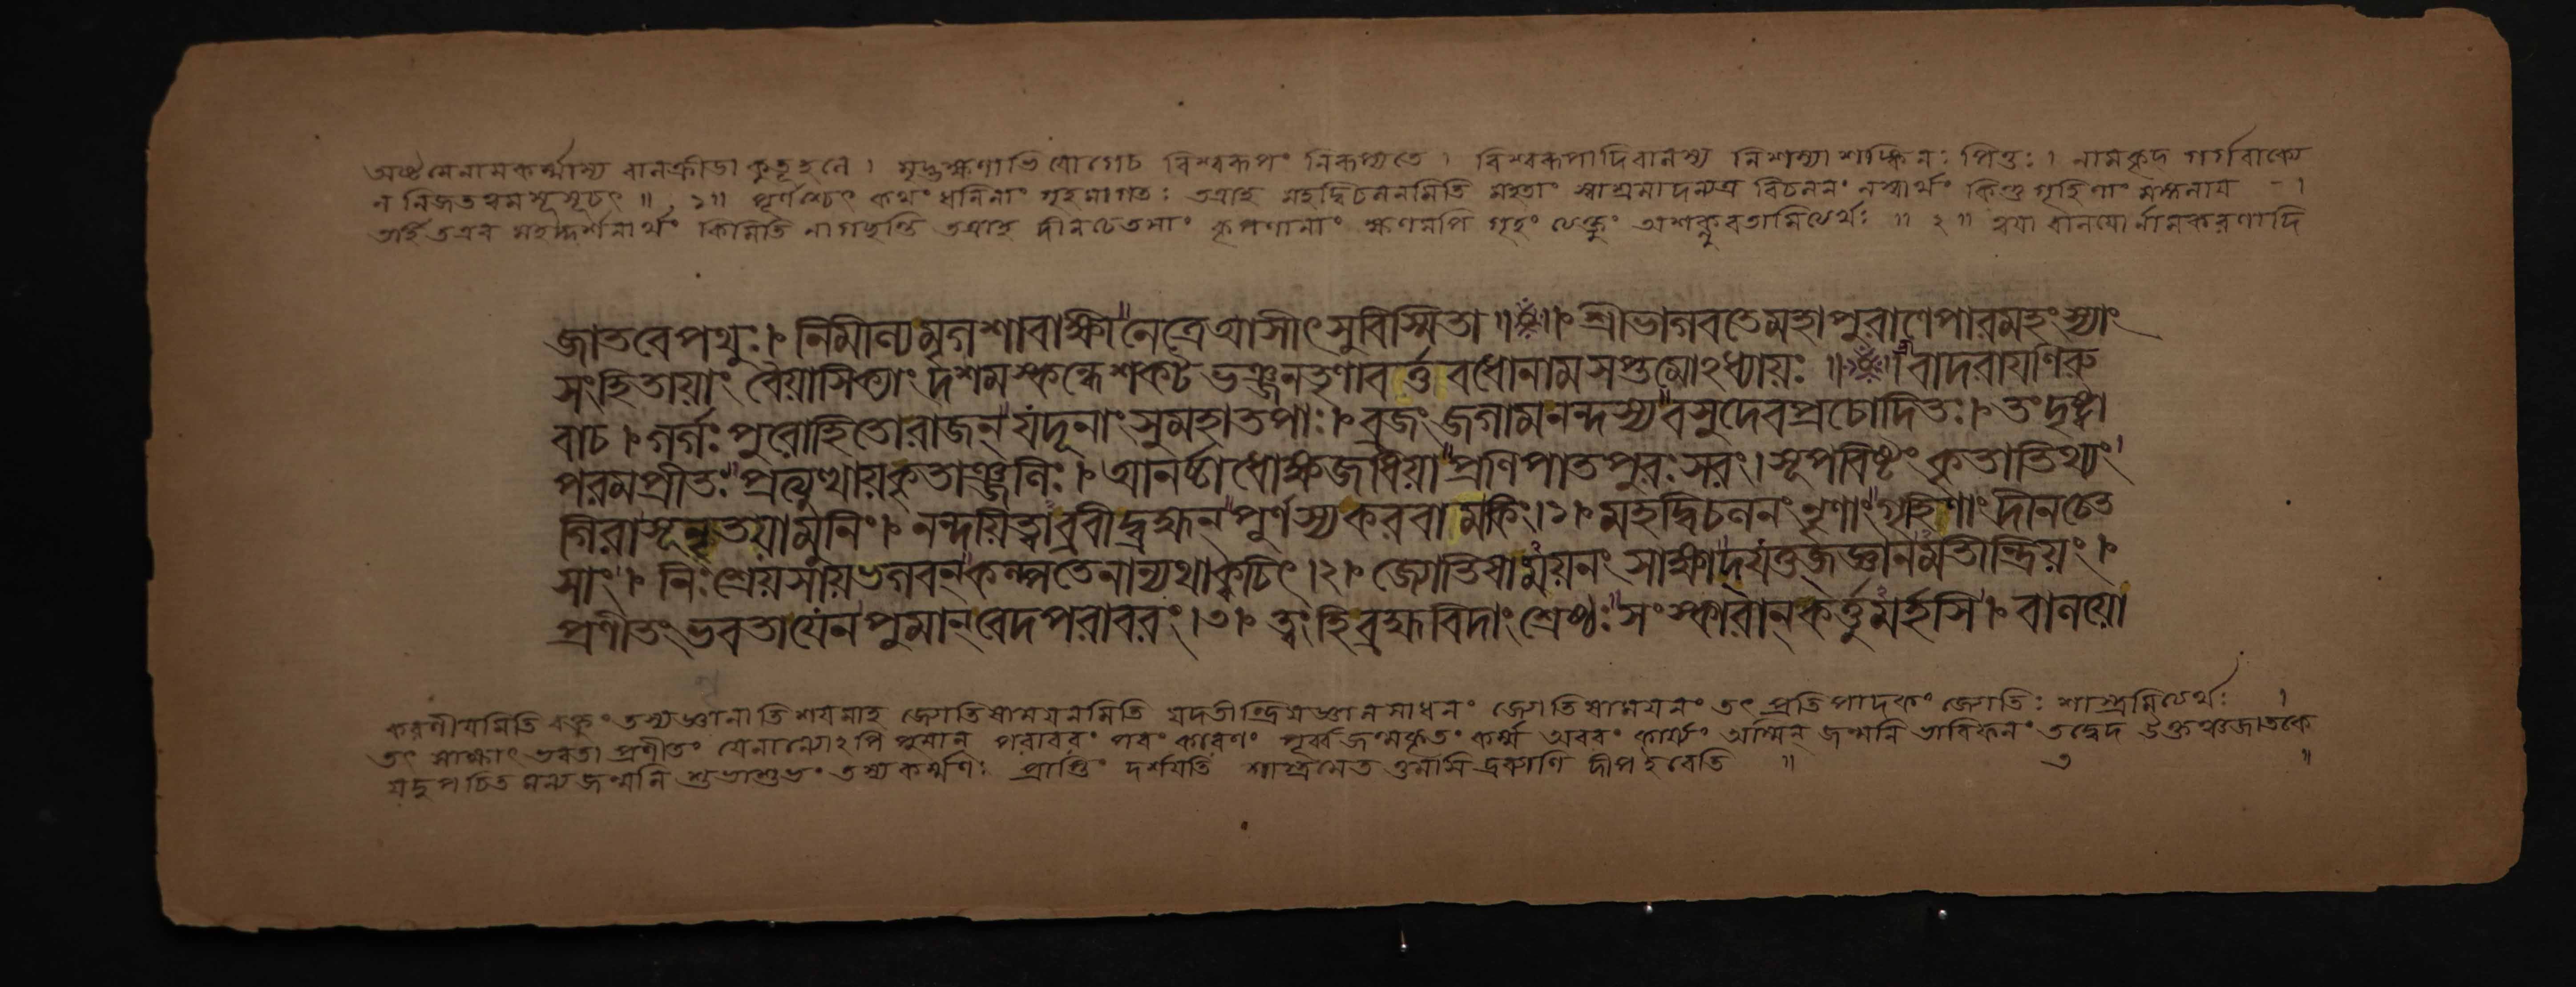 অষ্টমেনামকর্ম্মাস্য বালক্রীডা কুতূহলে । মৃদ্ভক্ষণাভিযোগেচ বিশ্বরূপং নিরূপ্যতে । বিশ্বরূপাদিবালস্য নিশম্যা শঙ্কিনঃ পিতুঃ । নামকৃদ গর্গবাক্যে
ন নিজতত্ত্বমসূসূচৎ ॥ ১॥ পূর্ণশ্চেৎ কথং ধনিনাং গৃহমাগতঃ তত্রাহ মহদ্বিচলনমিতি মহতাং স্বাশ্রমাদন্যত্র বিচলনং নস্বার্থং কিন্তু গৃহিণাং মঙ্গলায় ।
তর্হি তএব মহদ্দর্শনার্থং কিমিতি নাগছন্তি তত্রাহ দীনচেতসাং কৃপণানাং ক্ষণমপি গৃহং ত্যেক্তুং অশক্নুবতামিত্যের্থঃ ॥ ২ ॥ ময়া বালয়োর্নামকরণাদি
জাতবেপথুঃ । নিমীল্যমৃগশাবাক্ষী নেত্রেআসীৎসুবিস্মিতা ॥ ॥ শ্রীভাগবতেমহাপুরাণেপারমহংস্যাং
সংহিতায়াং বৈয়াসিক্যাং দশমস্কন্ধেশকটভঞ্জনতৃণাবর্ত্তবধোনামসপ্তমোঽধ্যায়ঃ ॥ ॥ বাদরায়ণিরু
বাচ । গর্গঃ পুরোহিতোরাজন্ যদূনাং সুমহাতপাঃ । ব্রজং জগামনন্দস্য বসুদেবপ্রচোদিতঃ । তংদৃষ্ট্বা
পরমপ্রীতঃ প্রত্যুত্থায়কৃতাঞ্জলিঃ । আনর্চ্চাধোক্ষজধিয়া প্রণিপাতপুরঃসরং । সূপবিষ্টং কৃতাতিথ্যং
গিরাসূনৃতয়ামুনিং । নন্দয়িত্বাব্রবীদ্ব্রহ্মন্ পূর্ণস্যকরবামকিং ।১। মহদ্বিচলনং নৃণাং গৃহিণাং দীনচেত
সাং । নিঃশ্রেয়সায়ভগবন্ কল্পতেনান্যথাক্বচিৎ ।২। জ্যোতিষাময়নং সাক্ষাদ্ যত্তজ্জ্ঞানমতীন্দ্রিয়ং ।
প্রণীতং ভবতাযেন পুমান্ বেদপরাবরং ।৩। ত্বংহিব্রহ্মবিদাং শ্রেষ্ঠঃ সংস্কারান্কর্ত্তুমর্হসি । বালয়ো
করণীয়মিতি বক্তুং তস্যজ্ঞানাতিশয়মাহ জ্যোতিষাময়নমিতি যদতীন্দ্রিয়জ্ঞানসাধনং জ্যোতিষাময়নং তৎ প্রতিপাদকং জ্যোতিঃ শাস্ত্রমিত্যের্থঃ ।
তৎ সাক্ষাৎ ভবতা প্রণীতং যেনান্যোঽপি পুমান পরাবরং পরং কারণং পূর্ব্বজন্মকৃতং কর্ম্ম অবরং কার্য্যং অস্মিন্ জন্মনি ভাবিফলং তদ্বেদ উক্তঞ্চজাতকে
যদুপচিত মন্যজন্মনি শুভাশুভং তস্য কর্ম্মণঃ প্রাপ্তিং দর্শয়তি শাস্ত্রমেত ত্তমসি দ্রব্যাণি দীপইবেতি ॥ ৩ ॥